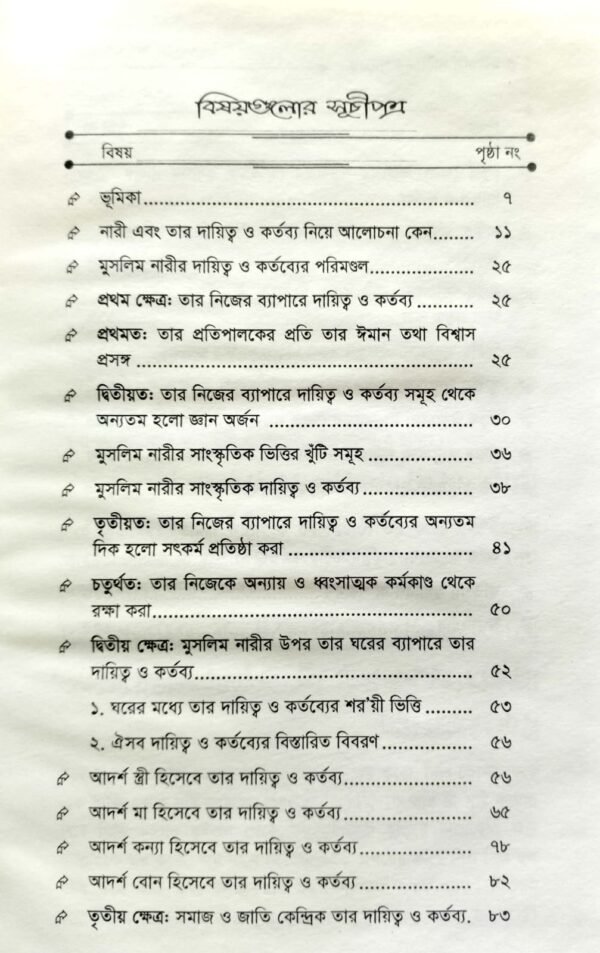 বিষয়গুলোর সূচীপত্র
বিষয় পৃষ্ঠা নং
ভূমিকা................................................................ ৭
নারী এবং তার দায়িত্ব ও কর্তব্য নিয়ে আলোচনা কেন........ ১১
মুসলিম নারীর দায়িত্ব ও কর্তব্যের পরিমণ্ডল.................... ২৫
প্রথম ক্ষেত্র: তার নিজের ব্যাপারে দায়িত্ব ও কর্তব্য ........... ২৫
প্রথমত: তার প্রতিপালকের প্রতি তার ঈমান তথা বিশ্বাস
প্রসঙ্গ ................................................................ ২৫
দ্বিতীয়ত: তার নিজের ব্যাপারে দায়িত্ব ও কর্তব্য সমূহ থেকে
অন্যতম হলো জ্ঞান অর্জন ........................................ ৩০
মুসলিম নারীর সাংস্কৃতিক ভিত্তির খুঁটি সমূহ .................... ৩৬
মুসলিম নারীর সাংস্কৃতিক দায়িত্ব ও কর্তব্য ..................... ৩৮
তৃতীয়ত: তার নিজের ব্যাপারে দায়িত্ব ও কর্তব্যের অন্যতম
দিক হলো সৎকর্ম প্রতিষ্ঠা করা .................................. ৪১
চতুর্থত: তার নিজেকে অন্যায় ও ধ্বংসাত্মক কর্মকাণ্ড থেকে
রক্ষা করা............................................................ ৫০
দ্বিতীয় ক্ষেত্র: মুসলিম নারীর উপর তার ঘরের ব্যাপারে তার
দায়িত্ব ও কর্তব্য..................................................... ৫২
১. ঘরের মধ্যে তার দায়িত্ব ও কর্তব্যের শর'য়ী ভিত্তি ......... ৫৩
২. ঐসব দায়িত্ব ও কর্তব্যের বিস্তারিত বিবরণ ................. ৫৬
আদর্শ স্ত্রী হিসেবে তার দায়িত্ব ও কর্তব্য........................ ৫৬
আদর্শ মা হিসেবে তার দায়িত্ব ও কর্তব্য ........................ ৬৫
আদর্শ কন্যা হিসেবে তার দায়িত্ব ও কর্তব্য...................... ৭৮
আদর্শ বোন হিসেবে তার দায়িত্ব ও কর্তব্য ...................... ৮২
তৃতীয় ক্ষেত্র: সমাজ ও জাতি কেন্দ্রিক তার দায়িত্ব ও কর্তব্য. ৮৩